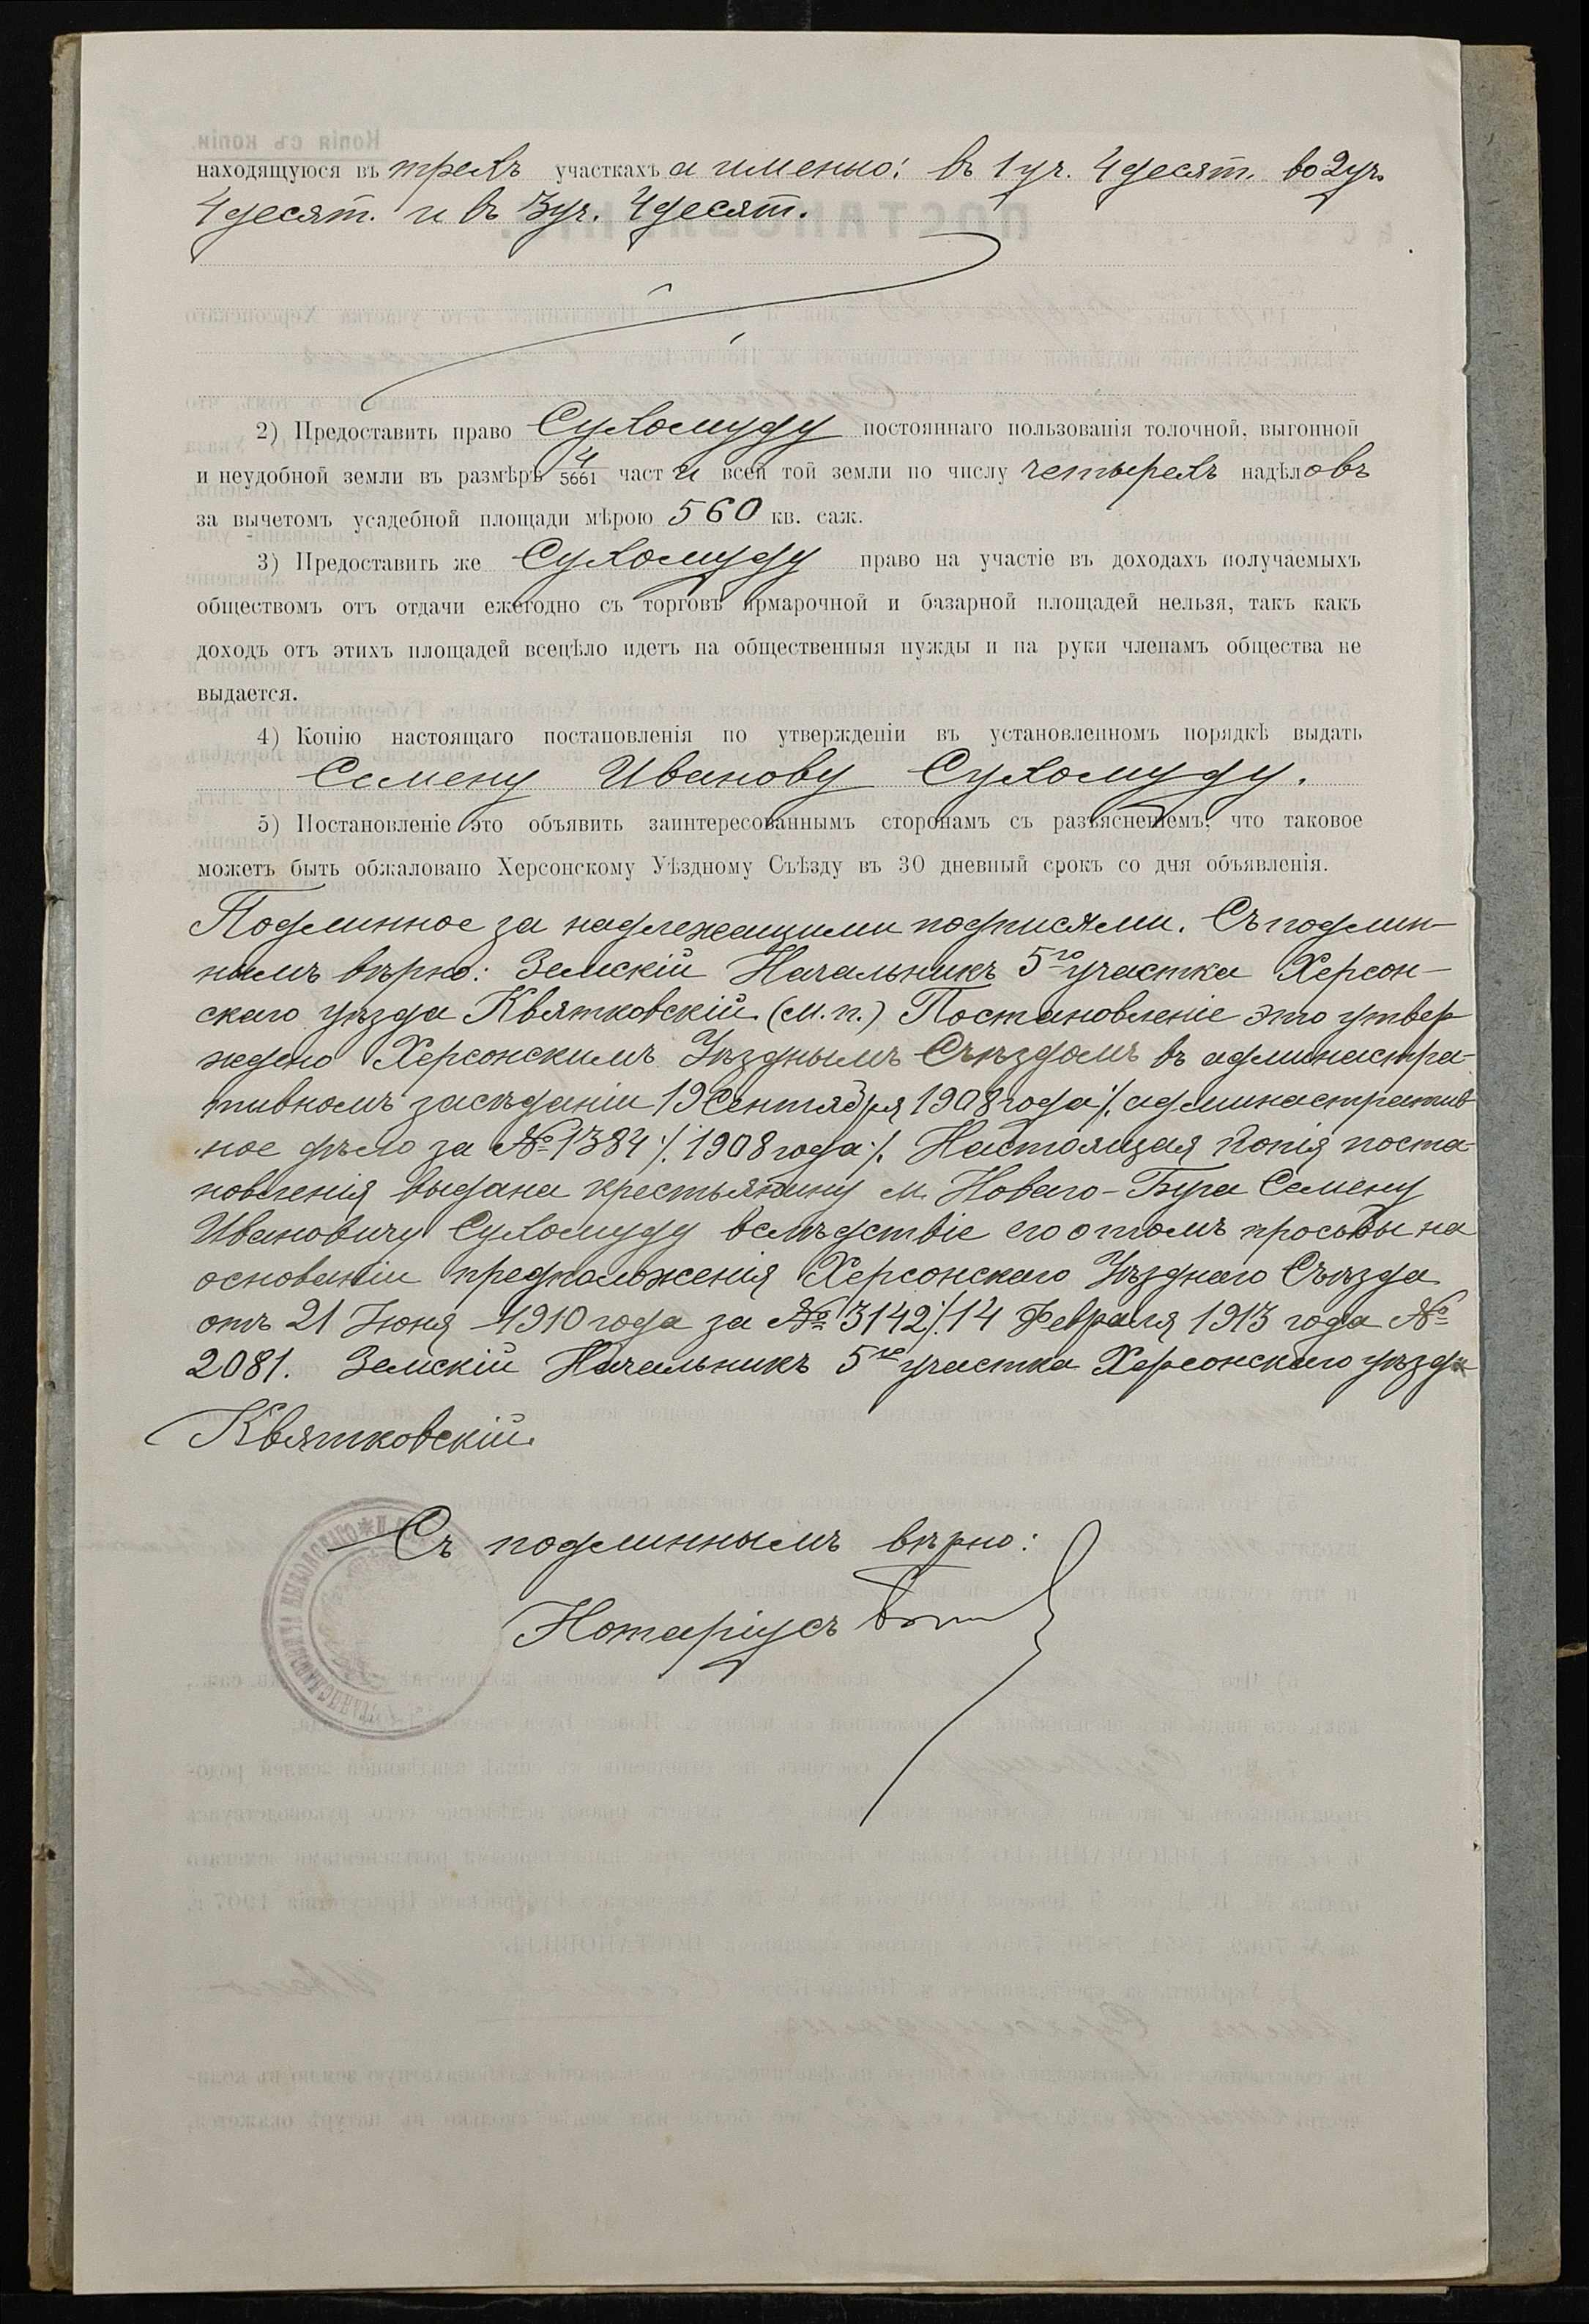 находящуюся въ трехъ участкахъ а именно: въ 1 уч. 4 десят. во 2 уч.
4 десят. и въ 3 уч. 4 десят.
2) Предоставить право Сухомуду постояннаго пользованія толочной, выгонной
и неудобной земли въ размѣрѣ 4/5661 части всей той земли по числу четырехъ надѣловъ
за вычетомъ усадебной площади мѣрою 560 кв. саж.
3) Предоставить же Сухомуду право на участіе въ доходахъ получаемыхъ
обществомъ отъ отдачи ежегодно съ торговъ ярмарочной и базарной площадей нельзя, такъ какъ
доходъ отъ этихъ площадей всецѣло идетъ на общественныя нужды и на руки членамъ общества не
выдается.
4) Копію настоящаго постановленія по утвержденіи въ установленномъ порядкѣ выдать
Семену Иванову Сухомуду.
5) Постановленіе это объявить заинтересованнымъ сторонамъ съ разъясненіемъ, что таковое
можетъ быть обжаловано Херсонскому Уѣздному Съѣзду въ 30 дневный срокъ со дня объявленія.
Подлинное за надлежащими подписями. Съ подлин-
нымъ вѣрно: Земскій Начальникъ 5го участка Херсон-
скаго уѣзда Квятковскій (м. п.) Постановленіе это утвер
ждено Херсонскимъ Уѣзднымъ Съѣздомъ въ админастра-
тивномъ засѣданіи 19 Сентября 1908 года ·/. админастратив
ное дѣло за № 1384 ·/. 1908 года ·/. Настоящая копія поста-
новленія выдана крестьянину м. Новаго-Буга Семену
Ивановичу Сухомуду вслѣдствіе его о томъ просьбы на
основаніи предположенія Херсонскаго Уѣзднаго Съѣзда
отъ 21 Іюня 1910 года за № 3142 ·/. 14 Февраля 1913 года №
2081. Земскій Начальникъ 5го участка Херсонскаго уѣзда
Квятковскій.
Съ подлиннымъ вѣрно:
Нотаріусъ